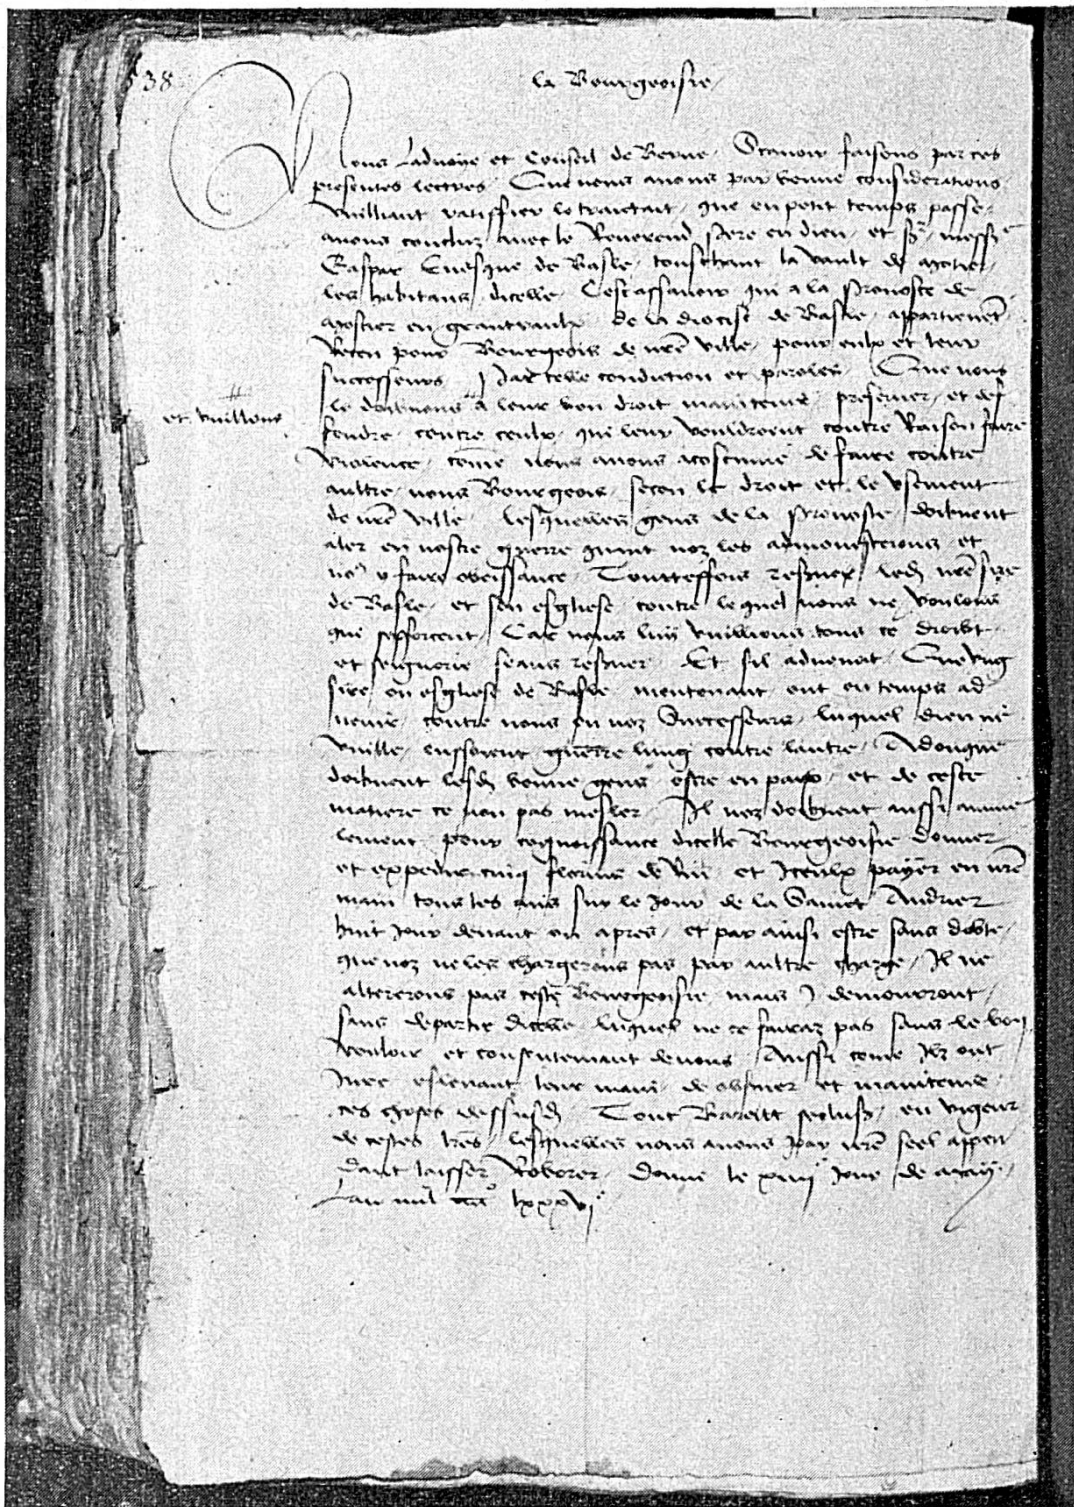 38
la Bourgeoisie
Nous Ladvoye et Conseil de Berne. Scavoir faisons par ces
presentes lectres. Que nous avons par bonne considerations
vuilliant ratiffier le traictait, que en petit temps passe
avons concluz avec le Reverend pere en dieu, et sr messe
Gaspar Evesque de Basle, touschant la vault de Motier
les habitans dicelle. Cest assavoir qui a la prevoste de
Mostier en grantvaulx de la diocise de Basle appartienent
Receu pour Bourgeois de nre ville, pour eulx et leur
successeurs. Par telle condiction et paroles. Que nous
et vuillons
le doibuons a leur bon droit maintenir, preserver, et def
fendre, contre ceulx, qui leur vouldroient contre Raison faire
violence, come nous avons acostume de faire contre
aultre, nous Bourgeois, secon le droit et le usement
de nre ville. Lesquelles gens de la prevoste doibuent
aler en nostre guerre quant noz les admonesterons, et
no9 y faire obeissance. Touttesfois reserver led nre sire
de Basle, et son esglise, contre lequel nous ne voulons
que sefforcent. Car nous luy vuillions tous ce droibt
et seignorie seaus reserver. Et sil advenoit. Que ung
sire ou esglise de Basle, mentenant, ont en temps ad
venir, contre nous ou noz Successeurs, luquel dieu ne
vuille, eussoient guerre lung contre lautre. Adonque
doibuent lesd bonne gens estre en paix, et de ceste
matiere ce non pas mesler. Il noz doibuent aussi annue
lement pour cognoissance dicelle Bourgeoisie donner
et expedier cinq florins de Rin et Iceulx payer en nre
main tous les ans sur le Jour de la Sainct Andrier
huit Jour devant ou apres, et par ainsi estre sans dobte,
que noz ne les chargerons pas par aultre charge. Il ne
altererons pas ceste Bourgeoisie, mais y demourront,
sans departir dicelle, luquel ne ce fairaz pas sans le bon
vouloir et consentemant de nous. Aussi come Ilz ont
Juré eslevant leur main, de observer et maintenir
ces choses dessusd. Tout Baratt seclusz, en vigeur
de cestes lres, lesquelles nous avons par nre seel appen
dant laisser Roborer. Donne le xiiij Jour de May.
Lan mil cccc lxxxvj